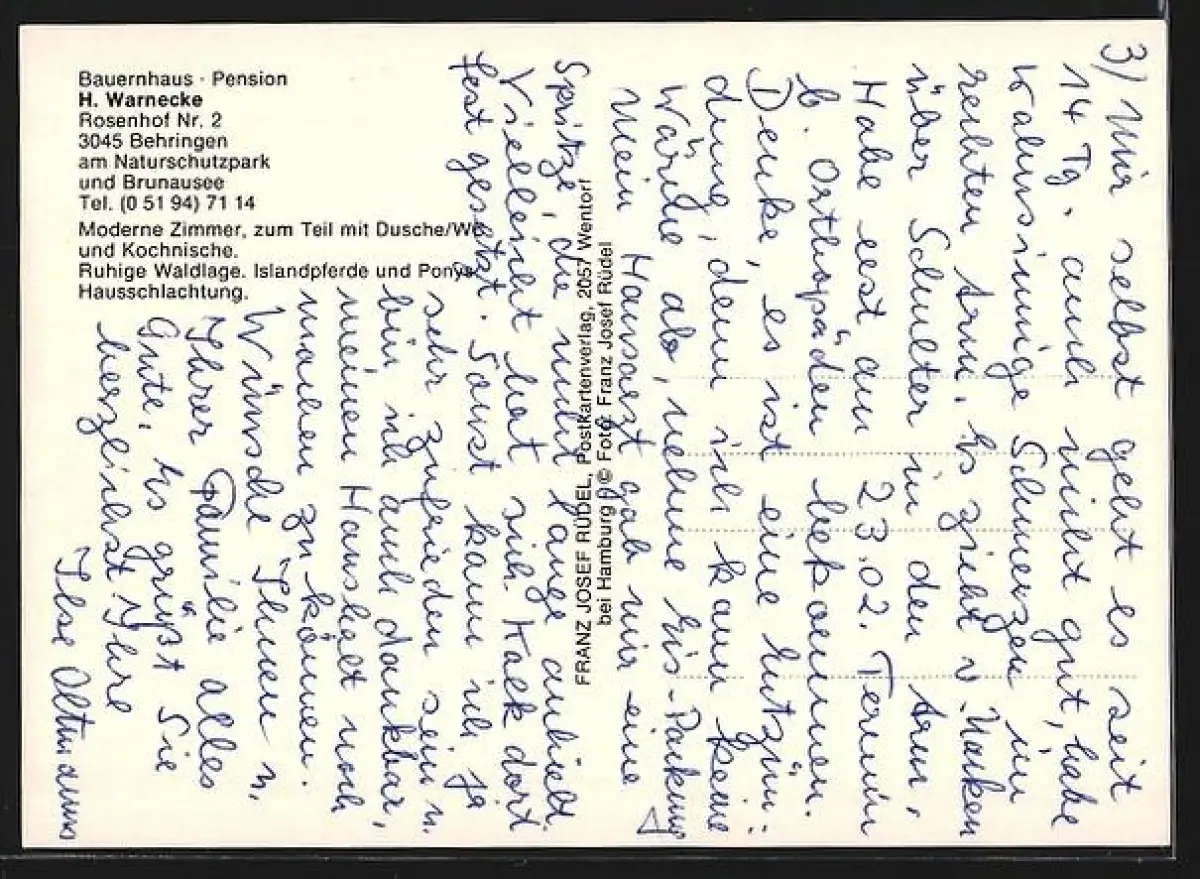 Bauernhaus · Pension
H. Warnecke
Rosenhof Nr. 2
3045 Behringen
am Naturschutzpark
und Brunausee
Tel. (0 51 94) 71 14
Moderne Zimmer, zum Teil mit Dusche/WC
und Kochnische.
Ruhige Waldlage. Islandpferde und Ponys.
Hausschlachtung.
FRANZ JOSEF RÜDEL, Postkartenverlag, 2057 Wentorf
bei Hamburg © Foto: Franz Josef Rüdel
3/ Mir selbst geht es seit
14 Tg. auch nicht gut, habe
wahnsinnige Schmerzen im
rechten Arm. Es zieht v. Nacken
über Schulter in den Arm,
Habe erst am 23.02. Termin
b. Orthopäden bekommen.
Denke, es ist eine Entzün=
dung, denn ich kann keine
Wärme ab, nehme Eis-Packung
Mein Hausarzt gab mir eine
Spritze, die nicht lange anhielt.
Vielleicht hat sich Kalk dort
fest gesetzt. Sonst kann ich ja
sehr zufrieden sein u.
bin ich auch dankbar,
meinen Haushalt noch
machen zu können.
Wünsche Ihnen u.
Ihrer Familie alles
Gute. Es grüßt Sie
herzlichst Ihre
Ilse Oltmanns